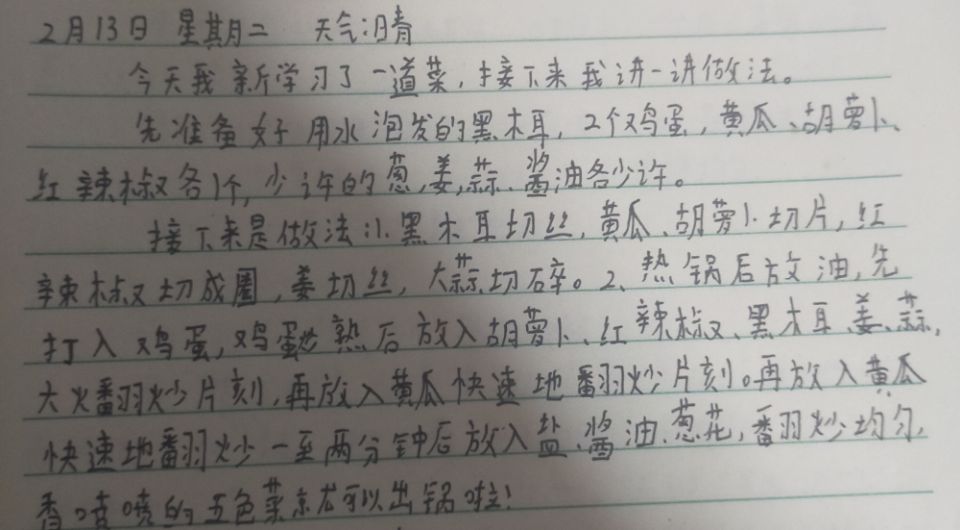 2月13日 星期二 天气:晴
今天我新学习了一道菜,接下来我讲一讲做法。
先准备好用水泡发的黑木耳,2个鸡蛋,黄瓜、胡萝卜、
红辣椒各1个,少许的葱,姜,蒜、酱油各少许。
接下来是做法:1.黑木耳切丝,黄瓜、胡萝卜切片,红
辣椒切成圈,姜切丝,大蒜切碎。2、热锅后放油,先
打入鸡蛋,鸡蛋炒熟后放入胡萝卜、红辣椒、黑木耳、姜、蒜,
大火翻炒片刻,再放入黄瓜快速地翻炒片刻。再放入黄瓜
快速地翻炒一至两分钟后放入盐、酱油、葱花,翻炒均匀,
香喷喷的五色菜就可以出锅啦!